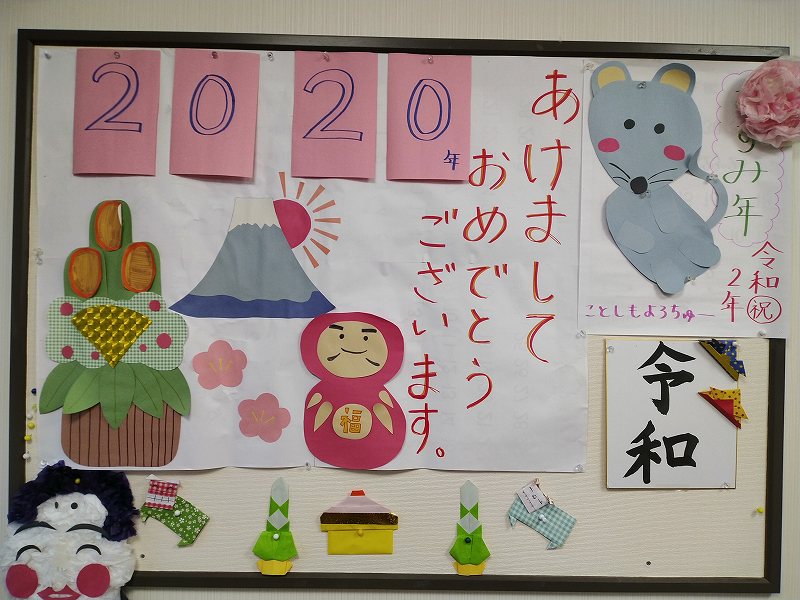 2020年
あけまして
おめでとう
ございます。
ずみ年
令和2年
祝
ことしもよろちゅー
福
令和